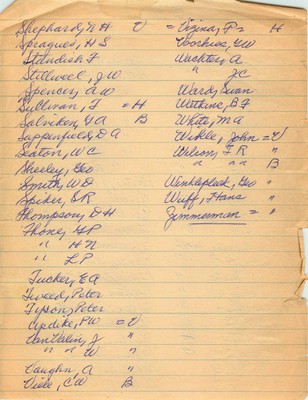 Shephard, N H
Sprague, H S
Standish F
Stillwell, J W
Spencer, A W
Sullivan, T = H
Salviken, G A B
Sappenfield, D A
Seaton, W C
Sheeley, Geo
Smith, W D
Spiker, S R
Thompson, D H
Thone, G P
" H N
" L P
Tucker, E A
Tweed, Peter
Tyson, Peter
Updike, P W = V
VanValin, J "
" " W "
Vaughn, A "
Viele, C W B
V = Vizina, P = H
Voorhies, G W
Wachter, A
" J C
Ward, Susan
Watkins, B F
White, M A
Winkle, John = V
Wilson, F R "
" " " B
Winklepleck, Geo "
Wuff, Hans "
Zimmerman = "